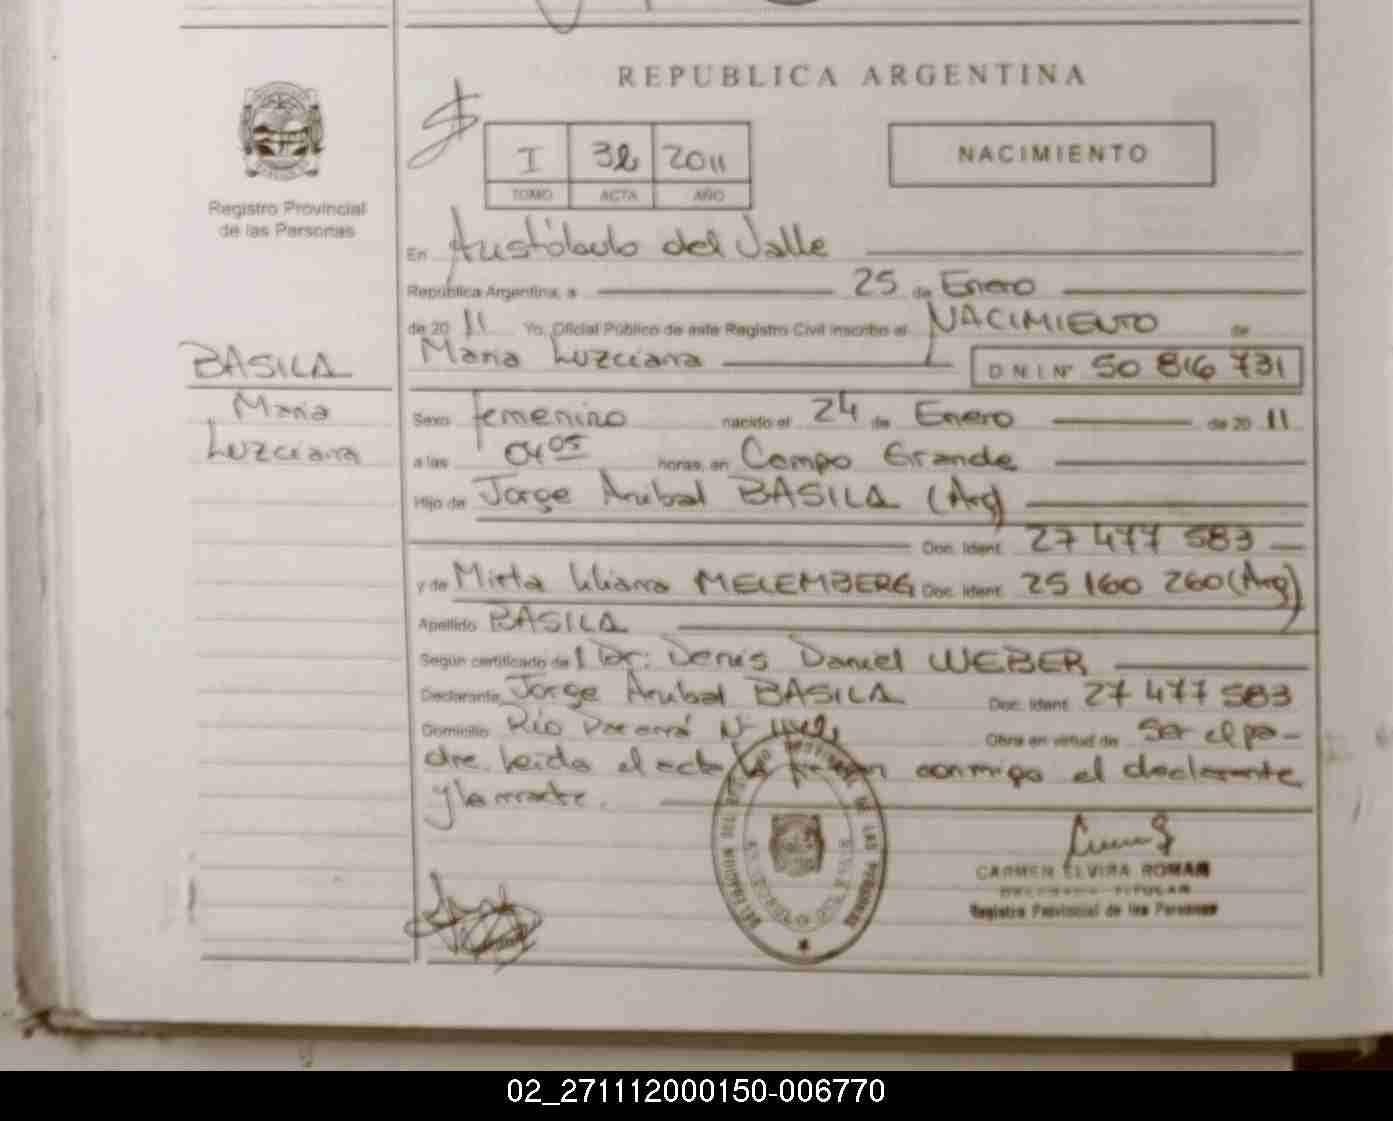 REPUBLICA ARGENTINA
I 32 2011
TOMO ACTA AÑO
NACIMIENTO
Registro Provincial
de las Personas
En Aristóbulo del Valle
República Argentina, a 25 de Enero
de 2011 Yo, Oficial Público de este Registro Civil inscribo el NACIMIENTO de
Maria Luzciana D N I Nº 50 816 731
BASILA
Maria
Luzciana
Sexo femenino nacido el 24 de Enero de 2011
a las 04 05 horas, en Campo Grande
Hijo de Jorge Anibal BASILA (Arg)
Doc. Ident. 27 477 583
y de Mirta Liliana MELEMBERG Doc. Ident. 25 160 260 (Arg)
Apellido BASILA
Según certificado de l Dr: Denis Daniel WEBER
Declarante Jorge Anibal BASILA Doc. Ident. 27 477 583
Domicilio Río Paraná Nº Obra en virtud de Ser el pa-
dre. Leida el acta la firman conmigo el declarante
y la madre.
CARMEN ELVIRA ROMAN
DELEGADA TITULAR
Registro Provincial de las Personas
PROVINCIAL DE LAS PERSONAS
02_271112000150-006770